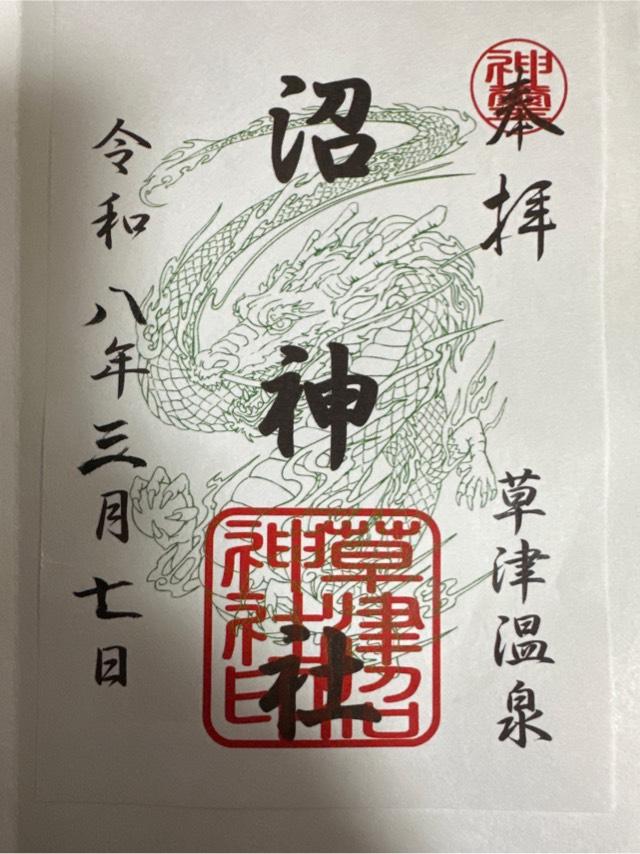 奉拝
草津温泉
沼神社
令和八年三月七日
草津沼
神社印